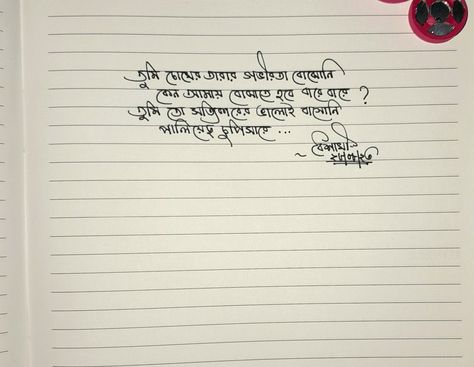 তুমি চোখের তারার গভীরতা বোঝোনি
কেন আমায় বোঝাতে হবে বারে বারে ?
তুমি তো সত্যিকারের ভালোই বাসোনি
পালিয়েছ চুপিসারে ...